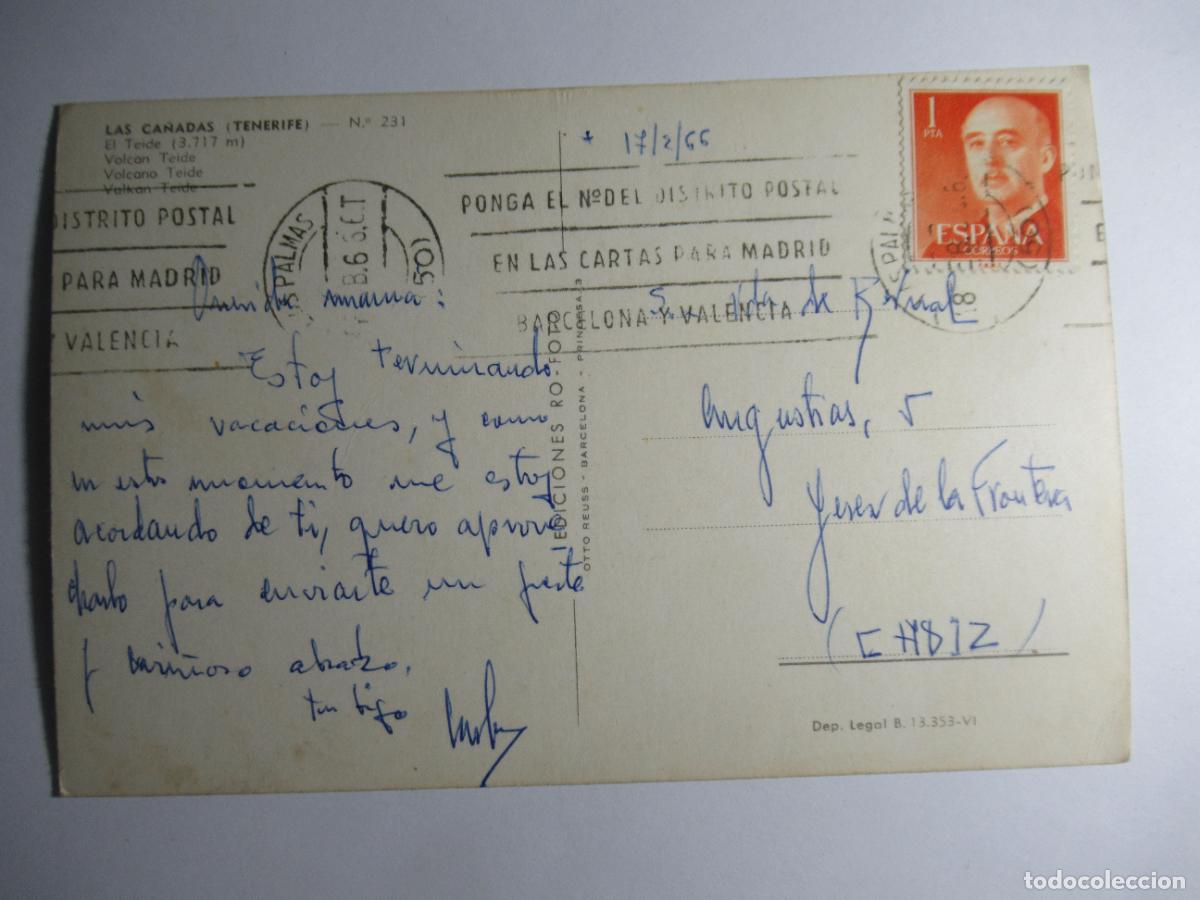 LAS CAÑADAS (TENERIFE) — N.º 231
El Teide (3.717 m)
Volcan Teide
Volcano Teide
Vulkan Teide
* 17/2/66
1
PTA
ESPAÑA
CORREOS
DISTRITO POSTAL
PARA MADRID
Y VALENCIA
PALMAS
PONGA EL Nº DEL DISTRITO POSTAL
EN LAS CARTAS PARA MADRID
BARCELONA Y VALENCIA
Querida mamá:
Estoy terminando
mis vacaciones, y como
en estos momento me estoy
acordando de ti, quero aprove
charlo para enviarte un fuerte
y cariñoso abrazo.
tu hijo
EDICIONES RO-FOTO
OTTO REUSS - BARCELONA - PRINCESA, 3
Vda de
Angustias, 5
Jerez de la Frontera
(CADIZ)
Dep. Legal B. 13.353-VI
todocoleccion